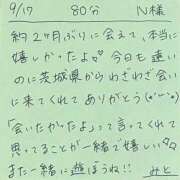 9/17 80分 N様
約2ヶ月ぶりに会えて、本当に
嬉しかったよ♡ 今日も遠い
のに茨城県からわざわざ会い
に来てくれてありがとう(*'ᵕ'*)
「会いたかったよ」って言ってくれて
思ってることが一緒で嬉しい♡
また一緒に遊ぼうね!! みと